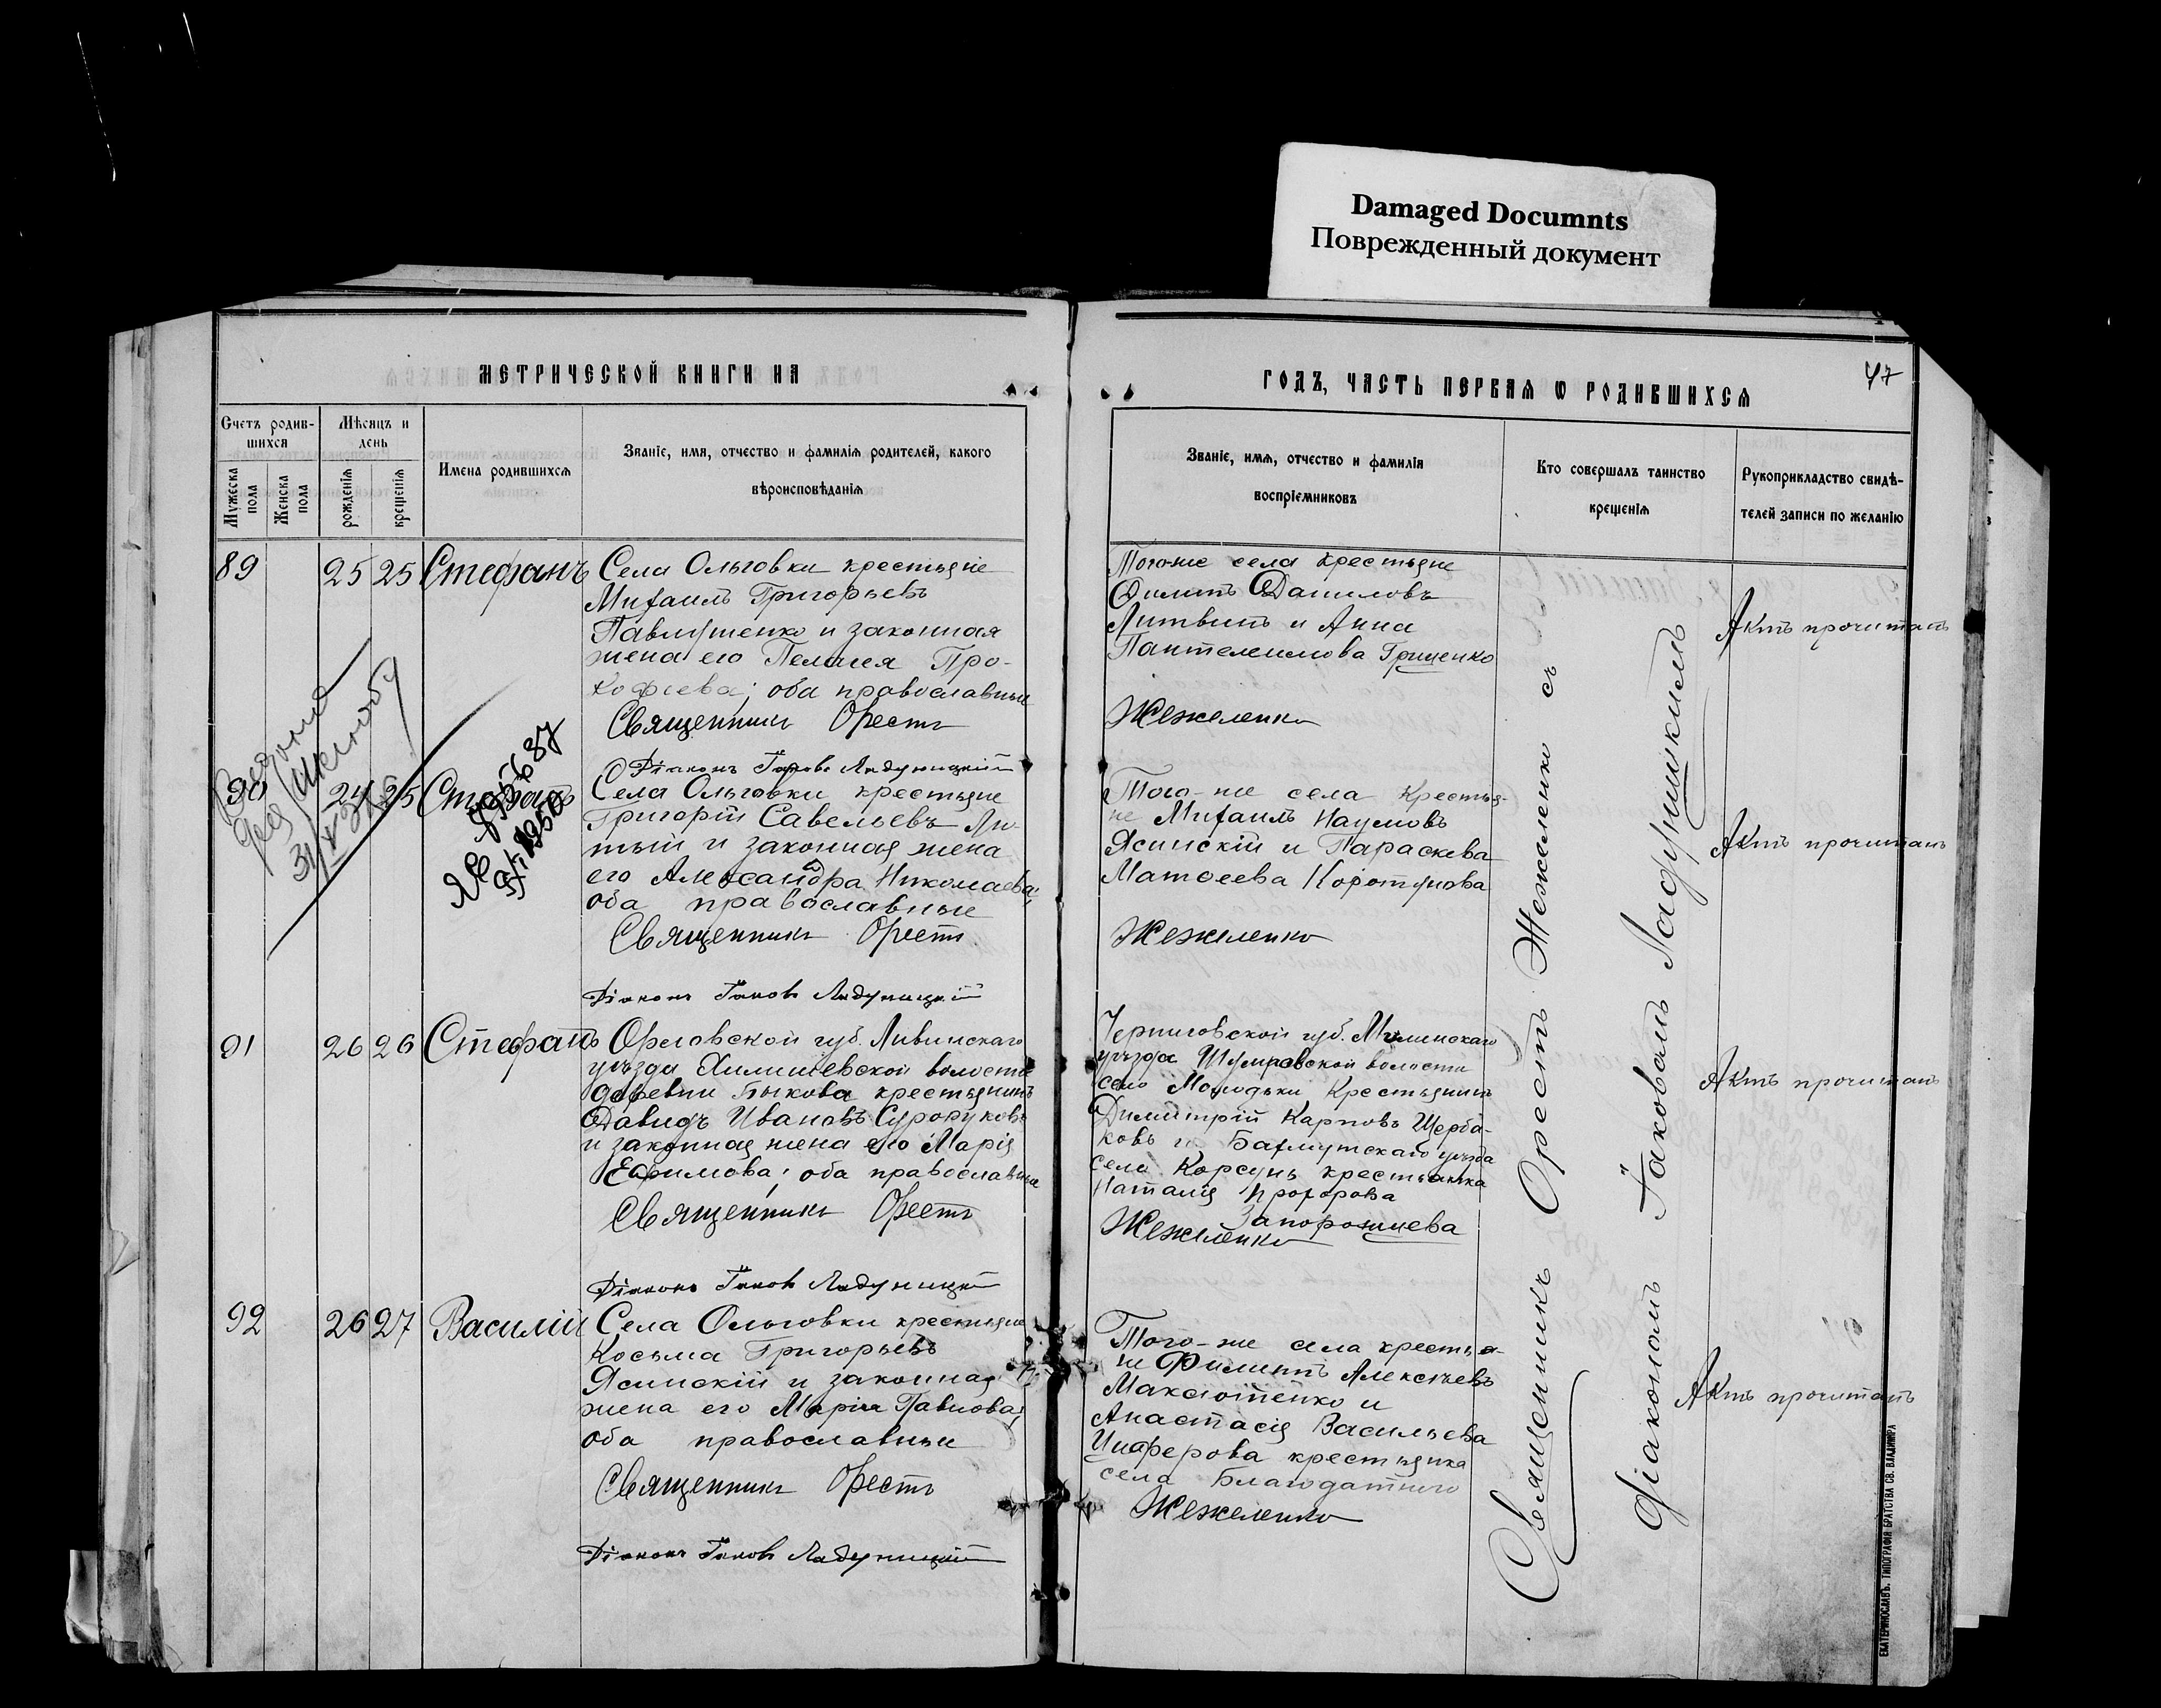 Damaged Documnts
Поврежденный документ
МЕТРИЧЕСКОЙ КНИГИ НА
ГОДЪ, ЧАСТЬ ПЕРВАЯ Ѡ РОДИВШИХСЯ
47
Счетъ родив-
шихся
Мужеска пола
Женска пола
Мѣсяцъ и
день
рожденія
крещенія
Имена родившихся
Званіе, имя, отчество и фамилія родителей, какого
вѣроисповѣданія
Званіе, имя, отчество и фамилія
воспріемниковъ
Кто совершалъ таинство
крещенія
Рукоприкладство свидѣ-
телей записи по желанію
89 25 25 Стефанъ
Села Ольговки крестьяне
Михаилъ Григорьевъ
Павлушенко и законная
жена его Пелагея Про-
кофиева; оба православные
Священникъ Орестъ
Діаконъ Іаковъ Ладушицкій
Того-же села крестьяне
Филипъ Даниловъ
Литвинъ и Анна
Пантелеимова Гриценко
Жежеленко
Актъ прочитанъ
90 24 25 Стефанъ
Села Ольговки крестьяне
Григорій Савельевъ Лю-
тый и законная жена
его Александра Николаева;
оба православные
Священникъ Орестъ
Діаконъ Іаковъ Ладушицкій
Того-же села крестья-
не Михаилъ Наумовъ
Ясинскій и Параскева
Матѳеева Коротунова
Жежеленко
Актъ прочитанъ
91 26 26 Стефанъ
Орловской губ. Ливинскаго
уѣзда волости
деревни Быкова крестьянинъ
Давидъ Ивановъ
и законная жена его Марія
Ефимова; оба православные
Священникъ Орестъ
Діаконъ Іаковъ Ладушицкій
Черниговской губ. Мглинскаго
уѣзда Шумаровской волости
село Молодьки Крестьянинъ
Димитрій Карповъ Щерба-
ковъ и Бахмутскаго уѣзда
села Корсунь крестьянка
Наталія Прохорова
Запорожцева
Жежеленко
Актъ прочитанъ
92 26 27 Василій
Села Ольговки крестьяне
Косьма Григорьевъ
Ясинскій и законная
жена его Марія Павлова;
оба православные
Священникъ Орестъ
Діаконъ Іаковъ Ладушицкій
Того-же села крестья-
не Филипъ Алексѣевъ
Максютенко и
Анастасія Васильева
крестьянка
села Благодатнаго
Жежеленко
Актъ прочитанъ
Священникъ Орестъ Жежеленко съ
діакономъ Іаковомъ Ладушицкимъ
ЕКАТЕРИНОСЛАВЪ. ТИПОГРАФІЯ БРАТСТВА СВ. ВЛАДИМІРА